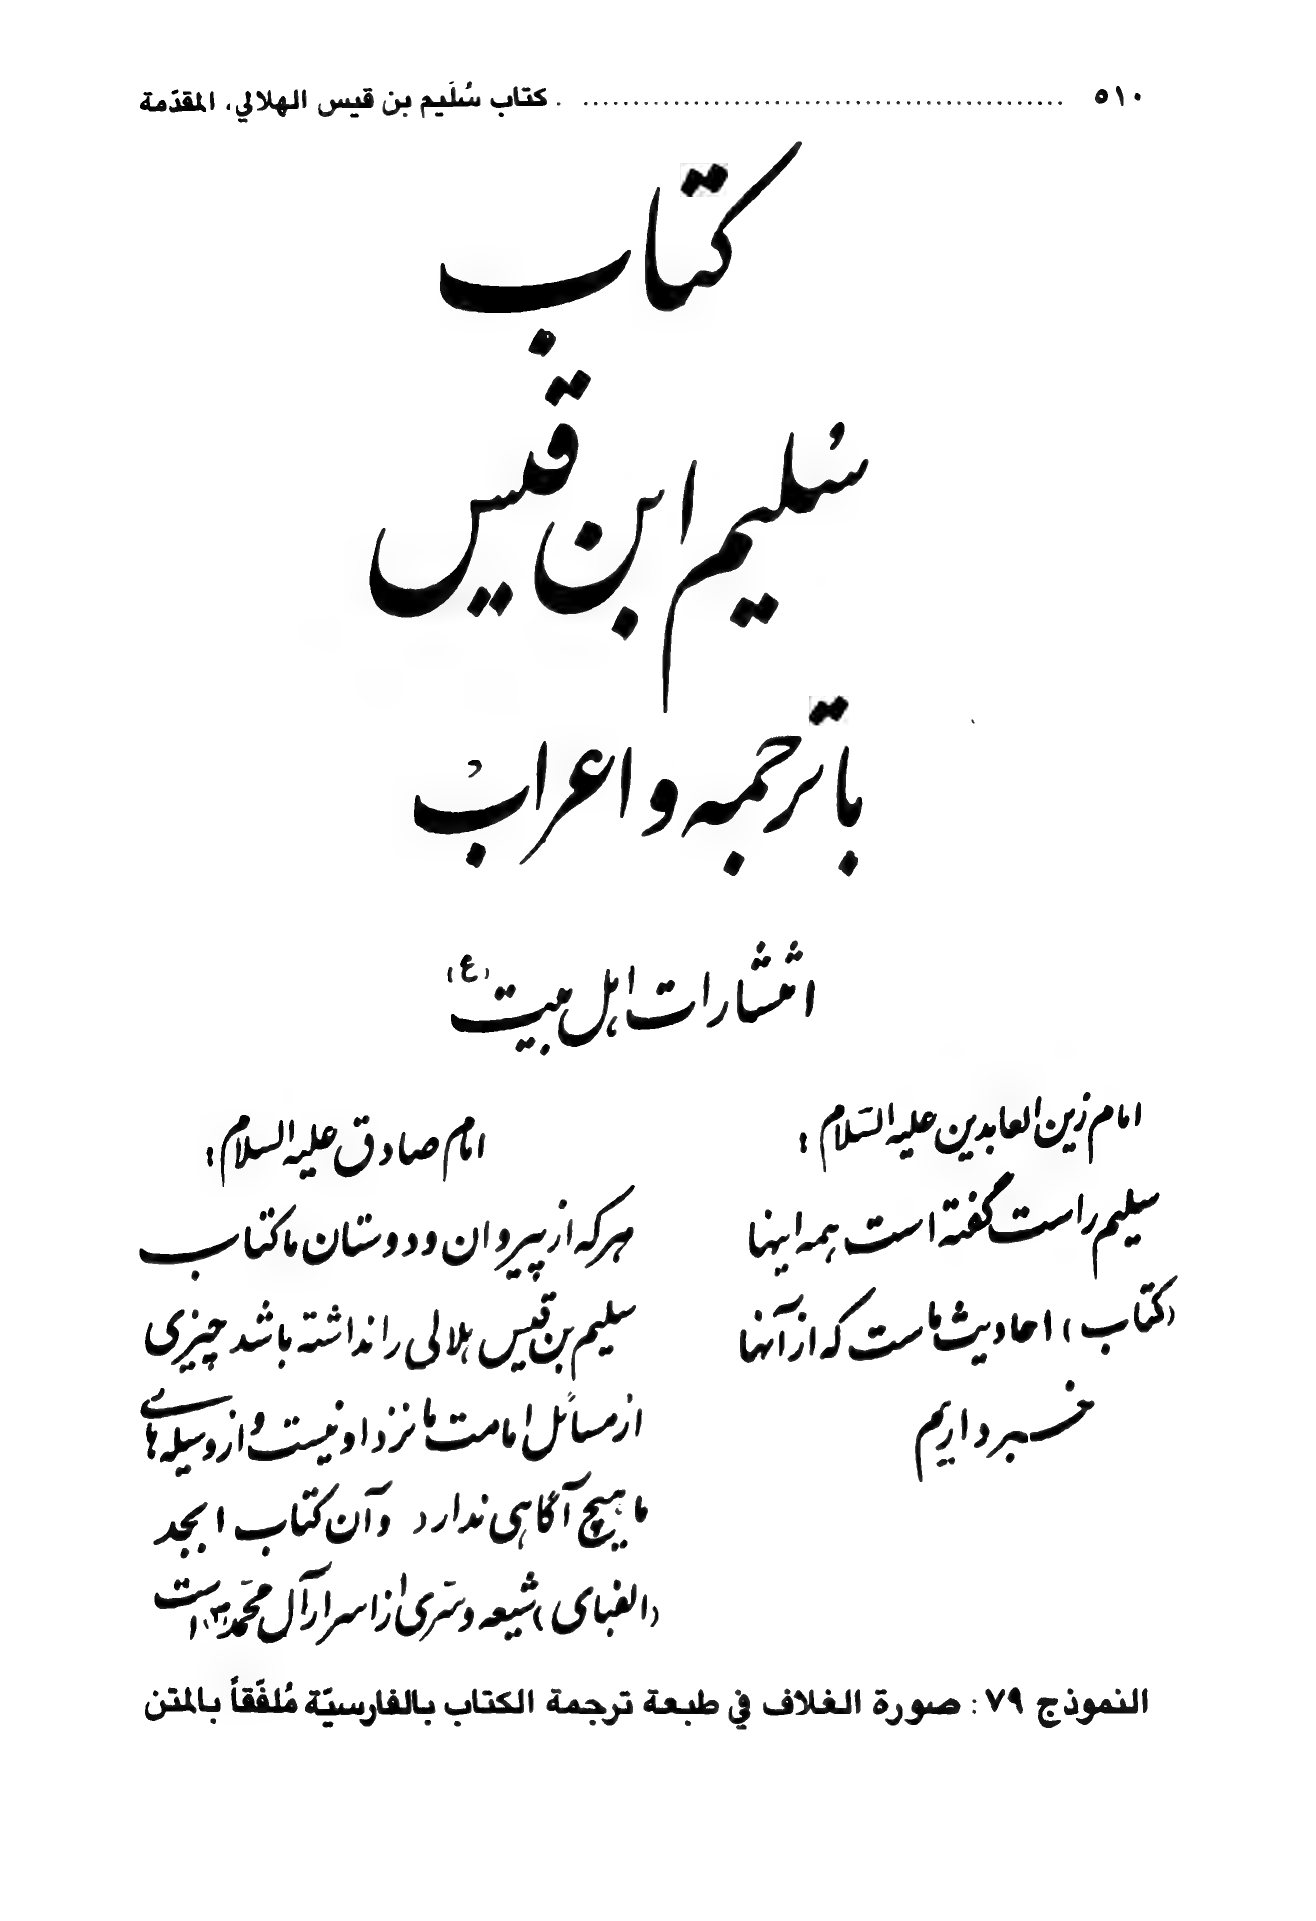 ٥١٠ ........................................ كتاب سُلَيم بن قيس الهلالي، المقدّمة
كتاب
سُليم ابن قيس
با ترجمه و اعراب
انتشارات اهل بيت (ع)
امام زين العابدين عليه السّلام :
سليم راست گفته است همه اينها
(كتاب) احاديث ماست كه از آنها
خبر داريم
امام صادق عليه السلام :
هركه از پيروان و دوستان ما كتاب
سليم بن قيس هلالى را نداشته باشد چيزى
از مسائل امامت ما نزد او نيست و از وسيله هاى
ما هيچ آگاهى ندارد و آن كتاب ابجد
(الفباى) شيعه و سَرّى از اسرار آل محمّد (ص) است
النموذج ٧٩ : صورة الغلاف في طبعة ترجمة الكتاب بالفارسيّة مُلفّقاً بالمتن